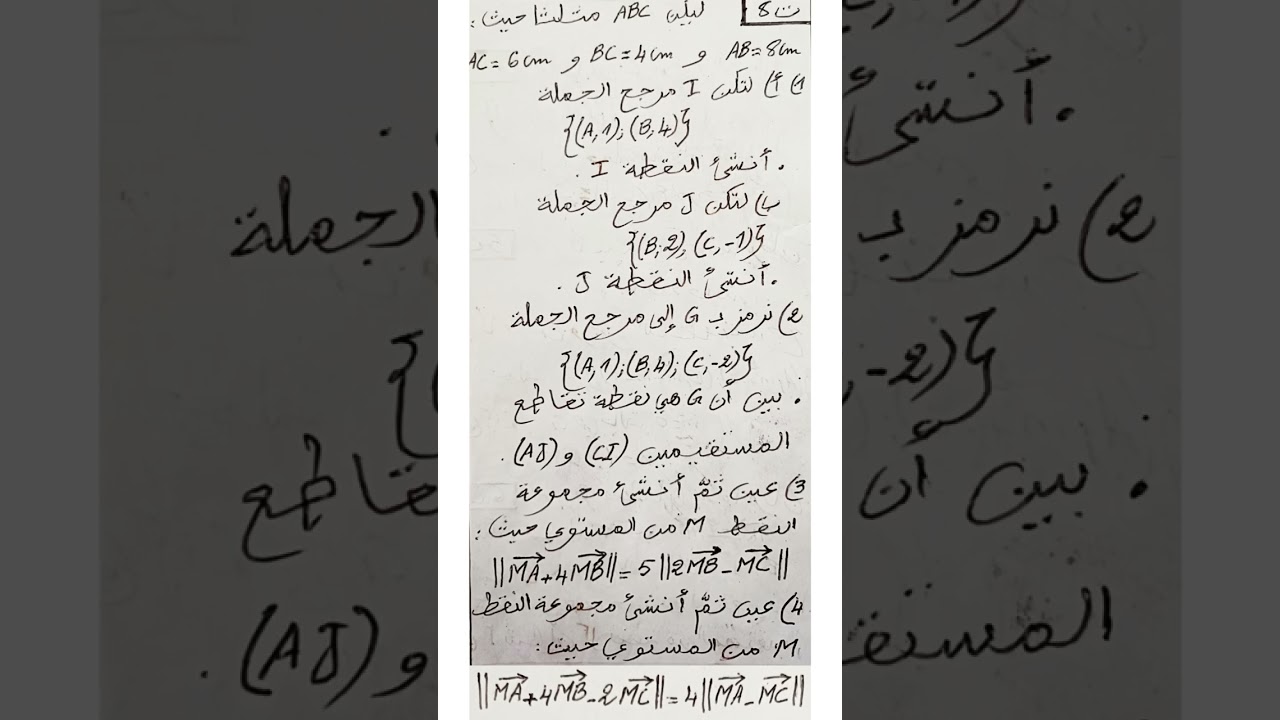 ت8 ليكن ABC مثلثا حيث:
AB=8cm و BC=4cm و AC=6cm
1) أ) لتكن I مرجع الجملة
{(A,1);(B,4)}
. أنشئ النقطة I.
ب) لتكن J مرجع الجملة
{(B,2),(C,-1)}
. أنشئ النقطة J.
2) نرمز بـ G إلى مرجع الجملة
{(A,1);(B,4);(C,-2)}
. بين أن G هي نقطة تقاطع
المستقيمين (CI) و (AJ).
3) عين ثمّ أنشئ مجموعة
النقط M من المستوي حيث:
||MA→+4MB→||=5||2MB→-MC→||
4) عين ثمّ أنشئ مجموعة النقط
M من المستوي حيث:
||MA→+4MB→-2MC→||=4||MA→-MC→||